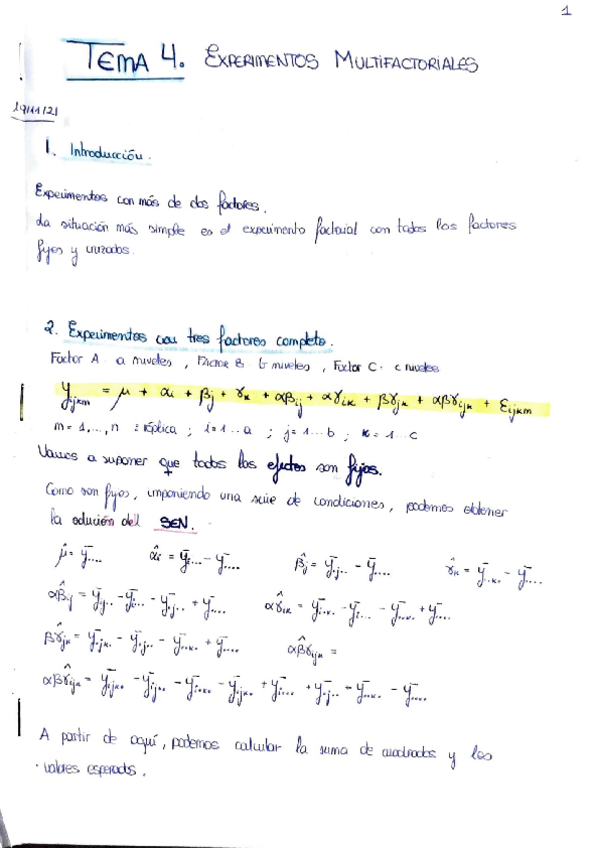 1
TEMA 4. EXPERIMENTOS MULTIFACTORIALES
19/11/21
1. Introducción.
Experimentos con más de dos factores.
La situación más simple es el experimento factorial con todos los factores
fijos y cruzados.
2. Experimentos con tres factores completo.
Factor A a niveles, Factor B b niveles, Factor C c niveles
y_ijkm = μ + α_i + β_j + γ_k + αβ_ij + αγ_ik + βγ_jk + αβγ_ijk + ε_ijkm
m = 1,...,n réplica ; i = 1...a ; j = 1...b ; k = 1...c
Vamos a suponer que todos los efectos son fijos.
Como son fijos, imponiendo una serie de condiciones, podemos obtener
la solución del SEN.
μ̂ = ȳ.... α̂_i = ȳ_i... - ȳ.... β̂_j = ȳ_.j.. - ȳ.... γ̂_k = ȳ_..k. - ȳ....
αβ̂_ij = ȳ_ij.. - ȳ_i... - ȳ_.j.. + ȳ.... αγ̂_ik = ȳ_i.k. - ȳ_i... - ȳ_..k. + ȳ....
βγ̂_jk = ȳ_.jk. - ȳ_.j.. - ȳ_..k. + ȳ.... αβγ̂_ijk =
αβγ̂_ijk = ȳ_ijk. - ȳ_ij.. - ȳ_i.k. - ȳ_.jk. + ȳ_i... + ȳ_.j.. + ȳ_..k. - ȳ....
A partir de aquí, podemos calcular la suma de cuadrados y los
valores esperados.